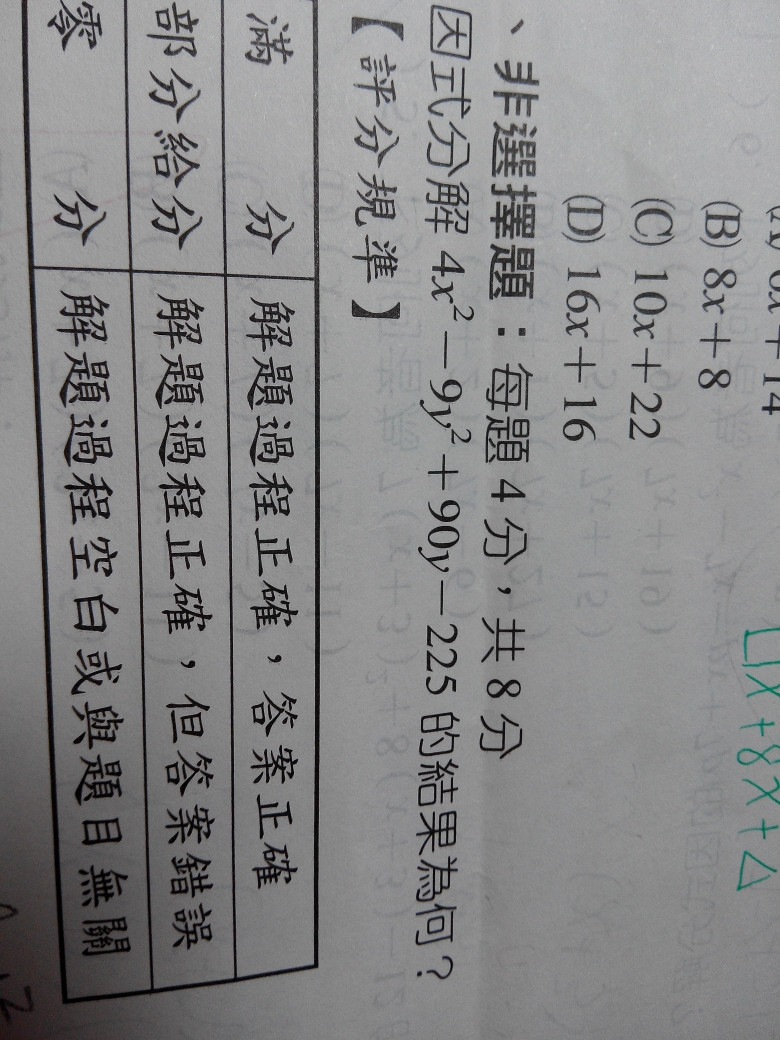 (B) 8x＋8
(C) 10x＋22
(D) 16x＋16
、非選擇題：每題 4 分，共 8 分
因式分解 4x²－9y²＋90y－225 的結果為何？
【評分規準】
滿分 解題過程正確，答案正確
部分給分 解題過程正確，但答案錯誤
零分 解題過程空白或與題目無關